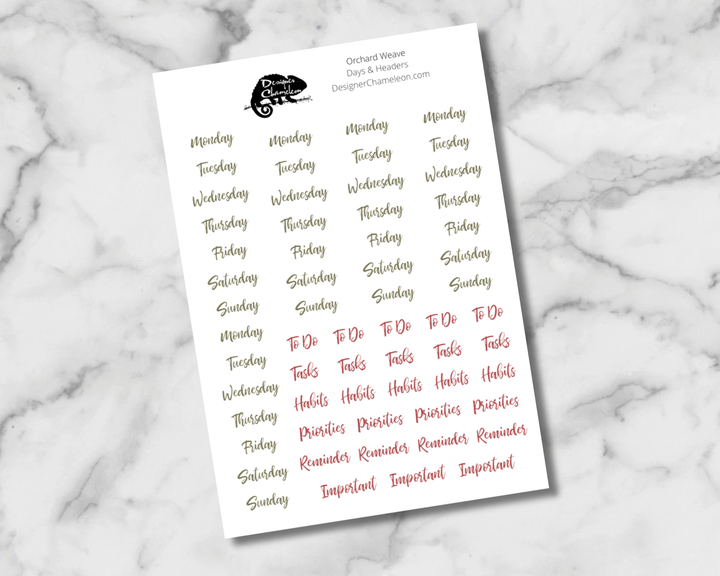 Designer
Chameleon
Orchard Weave
Days & Headers
DesignerChameleon.com
Monday Monday Monday Monday
Tuesday Tuesday Tuesday Tuesday
Wednesday Wednesday Wednesday Wednesday
Thursday Thursday Thursday Thursday
Friday Friday Friday Friday
Saturday Saturday Saturday Saturday
Sunday Sunday Sunday Sunday
Monday To Do To Do To Do To Do To Do
Tuesday Tasks Tasks Tasks Tasks Tasks
Wednesday Habits Habits Habits Habits Habits
Thursday Priorities Priorities Priorities Priorities
Friday Reminder Reminder Reminder Reminder
Saturday Important Important Important
Sunday